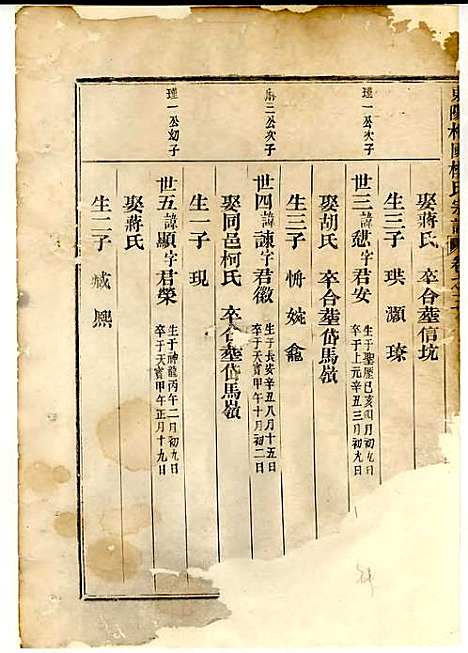 東陽
宗譜
卷之
娶蔣氏 卒合塟信坑
生三子 珙 灝 琜
瑾一公次子
世三諱愻字君安 生于聖歷己亥四月初九日
卒于上元辛丑三月初九日
娶胡氏 卒合塟岱馬嶺
生三子 㛿 婉 龕
三公次子
世四諱諫字君徽 生于長安辛丑八月十五日
卒于天寶甲午十月初二日
娶同邑柯氏 卒合塟岱馬嶺
生一子 現
瑾一公幼子
世五諱顯字君榮 生于神龍丙午二月初九日
卒于天寶甲午正月十九日
娶蔣氏
生二子 臧 熙